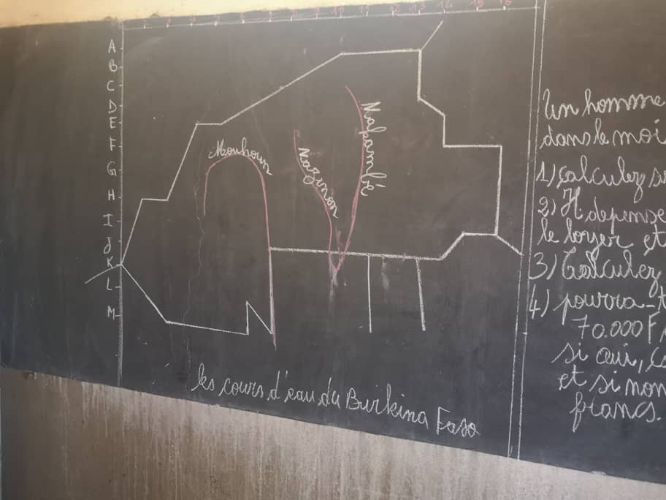 A
B
C
D
E
F
G
H
I
J
K
L
M
Mouhoun
Nazinon
Nakambé
les cours d'eau du Burkina Faso
Un homme
dans le moi
1) Calculez
2) Il dépense
le loyer et
3) Calculez
4) pourra-t
70.000 F
si oui, 
et si non
francs.